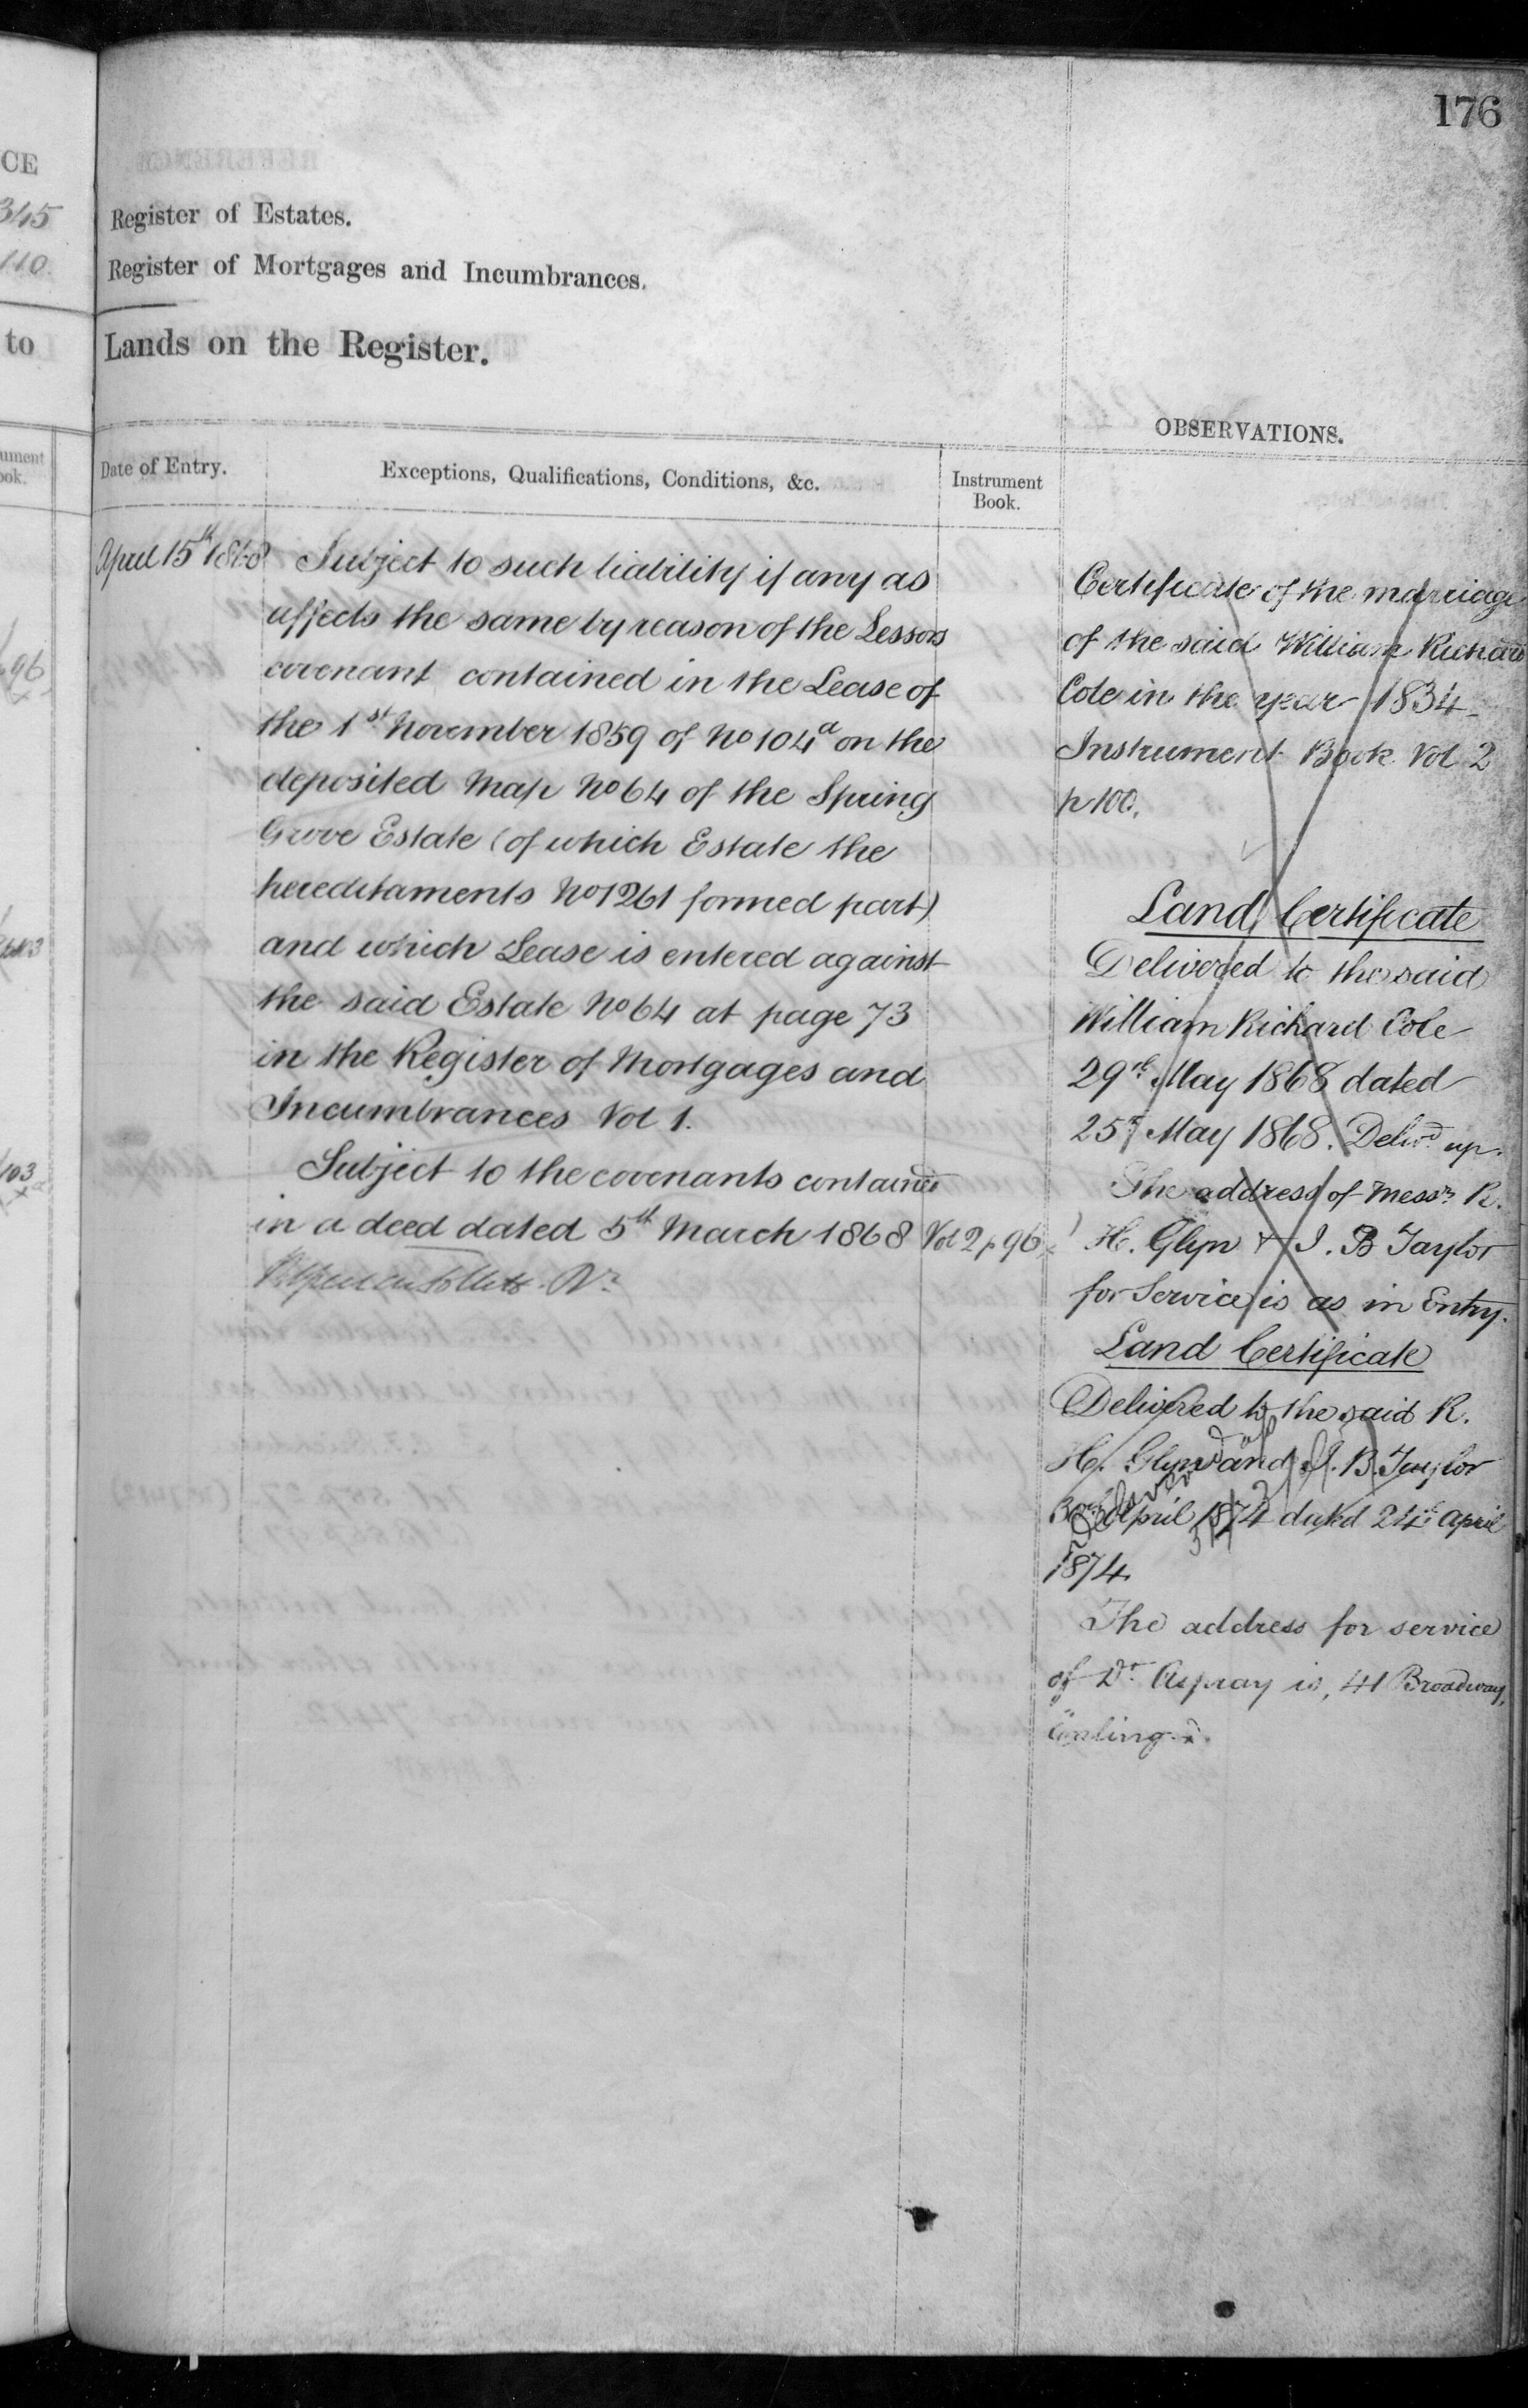 176
CE
345
110.
to
Register of Estates.
Register of Mortgages and Incumbrances.
Lands on the Register.
Date of Entry.
Exceptions, Qualifications, Conditions, &c.
Instrument
Book.
OBSERVATIONS.
April 15th 1868
Subject to such liability if any as
affects the same by reason of the Lessors
covenant contained in the Lease of
the 1st November 1859 of No 104a on the
deposited Map No 64 of the Spring
Grove Estate (of which Estate the
hereditaments No 1261 formed part)
and which Lease is entered against
the said Estate No 64 at page 73
in the Register of Mortgages and
Incumbrances Vol 1.
Subject to the covenants contained
in a deed dated 5th March 1868 Vol 2 p 96
Certificate of the marriage
of the said William Richard
Cole in the year 1834
Instrument Book Vol 2
p 100.
Land Certificate
Delivered to the said
William Richard Cole
29th May 1868 dated
25th May 1868. Delivd up.
The address of Messrs R.
H. Glyn & I. B Taylor
for Service is as in Entry.
Land Certificate
Delivered to the said R.
H. Glyn and I. B. Taylor
April 1874 dated 24th April
1874.
Delivered up
The address for service
of Dr. Aspray is, 41 Broadway,
Ealing